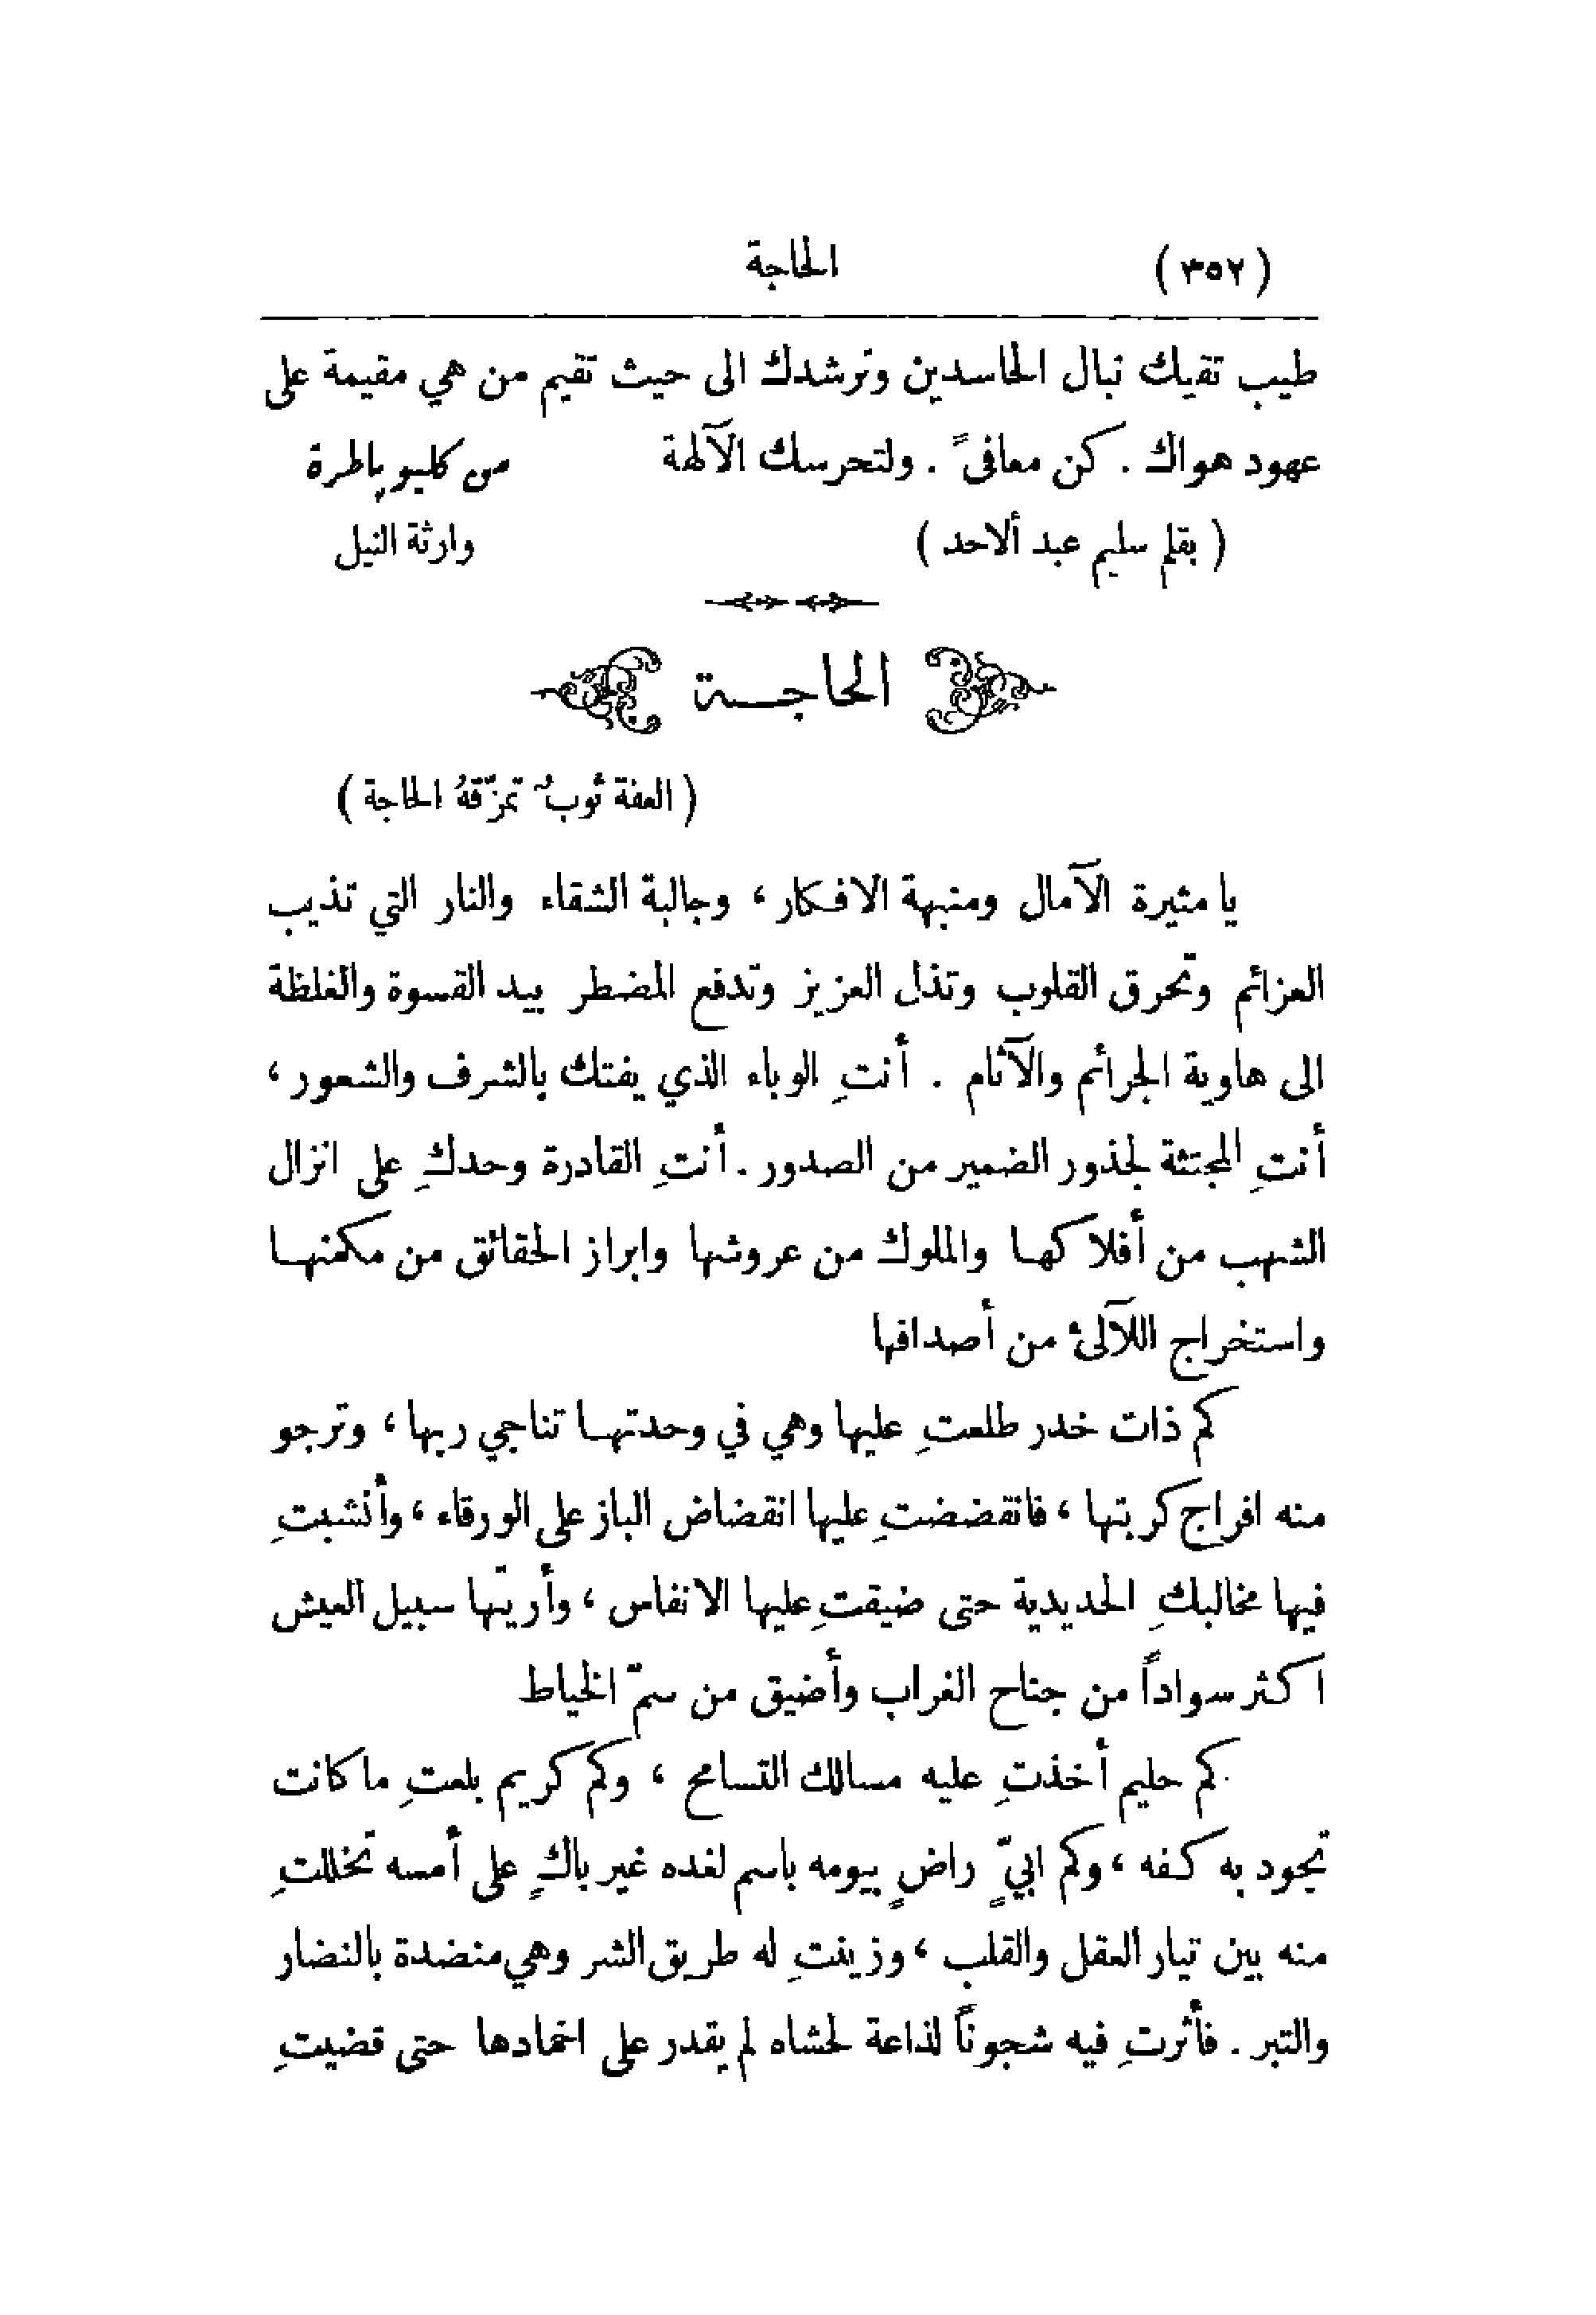 (٣٥٢) الحاجة
طيب تقيك نبال الحاسدين وترشدك الى حيث تقيم من هي مقيمة على
عهود هواك . كن معافىً . ولتحرسك الآلهة من كليوباطرة
( بقلم سليم عبد ألاحد ) وارثة النيل
الحاجــة
( العفة ثوبٌ تمزّقهُ الحاجة )
يا مثيرة الآمال ومنبهة الافكار ، وجالبة الشقاء والنار التي تذيب
العزائم وتحرق القلوب وتذل العزيز وتدفع المضطر بيد القسوة والغلظة
الى هاوية الجرائم والآثام . أنتِ الوباء الذي يفتك بالشرف والشعور ،
أنتِ المجتثة لجذور الضمير من الصدور . أنتِ القادرة وحدكِ على انزال
الشهب من أفلاكها والملوك من عروشها وابراز الحقائق من مكمنهـا
واستخراج اللآلئ من أصدافها
كم ذات خدر طلعتِ عليها وهي في وحدتهـا تناجي ربها ، وترجو
منه افراج كربتها ، فانقضضتِ عليها انقضاض الباز على الورقاء ، وأنشبتِ
فيها مخالبكِ الحديدية حتى ضيقتِ عليها الانفاس ، وأريتّها سبيل العيش
اكثر سواداً من جناح الغراب وأضيق من سمّ الخياط
كم حليم أخذتِ عليه مسالك التسامح ، وكم كريم بلعتِ ما كانت
تجود به كفه ، وكم ابيٍّ راضٍ بيومه باسم لغده غير باكٍ على أمسه تخللتِ
منه بين تيار العقل والقلب ، وزينتِ له طريق الشر وهي منضدة بالنضار
والتبر . فأثرتِ فيه شجوناً لذاعة لحشاه لم يقدر على اخمادها حتى قضيتِ